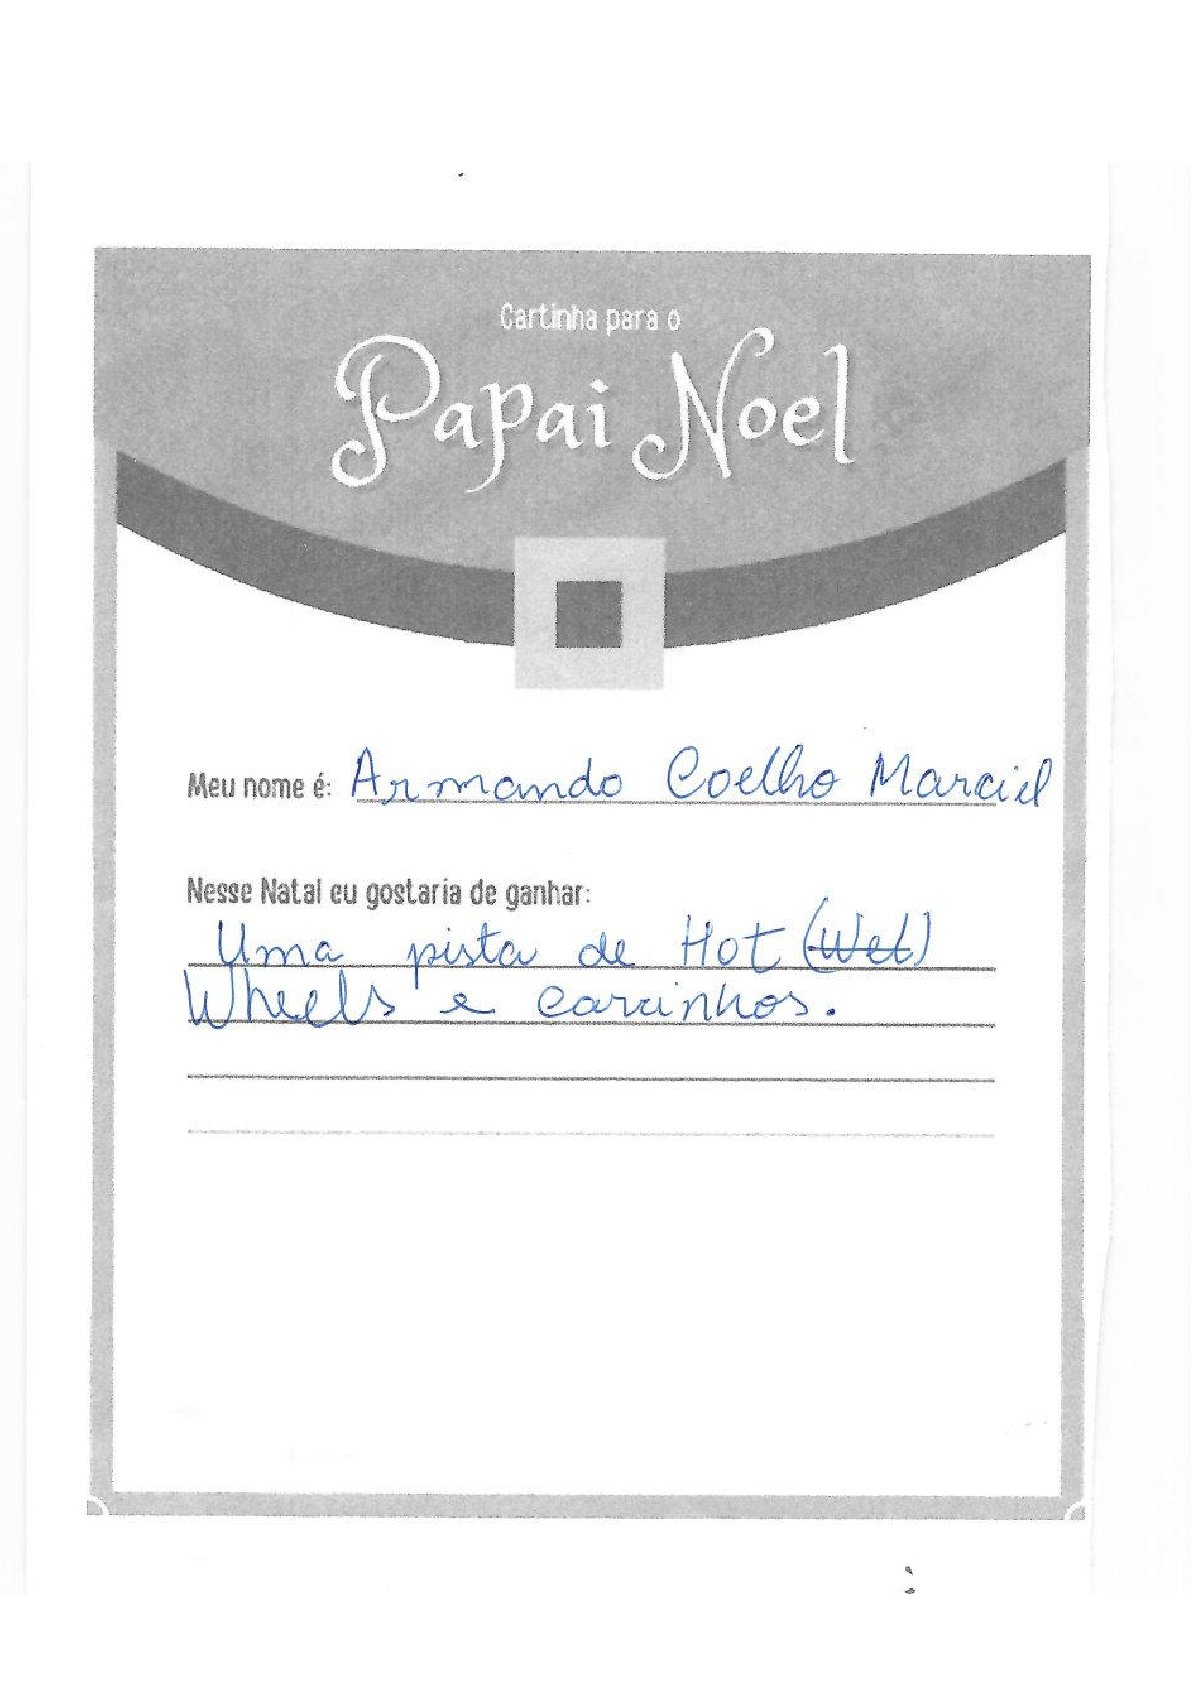 Cartinha para o
Papai Noel
Meu nome é: Armando Coelho Marciel
Nesse Natal eu gostaria de ganhar:
Uma pista de Hot (Wel)
Wheels e carrinhos.